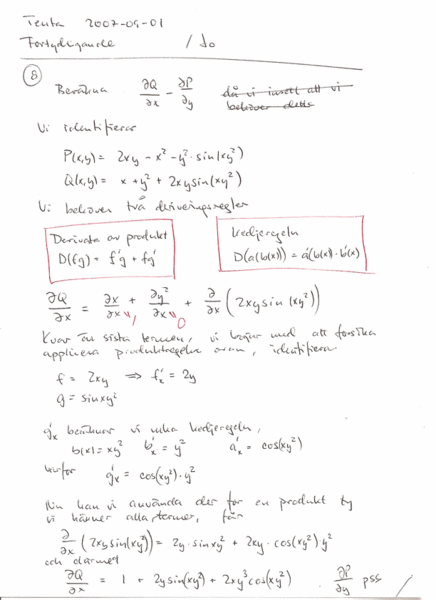 Tenta 2007-09-01
Förtydligande /Jo
⑧ Beräkna ∂Q/∂x - ∂P/∂y då vi insett att vi
behöver detta
Vi identifierar
P(x,y) = 2xy - x² - y²·sin(xy²)
Q(x,y) = x + y² + 2xysin(xy²)
Vi behöver två deriveringsregler
Derivata av produkt
D(fg) = f'g + fg'
Kedjeregeln
D(a(b(x))) = a'(b(x))·b'(x)
∂Q/∂x = ∂x/∂x + ∂y²/∂x + ∂/∂x (2xysin(xy²))
1 0
Kvar är sista termen, vi börjar med att försöka
applicera produktregeln ovan, identifiera
f = 2xy ⟹ f'x = 2y
g = sinxy²
g'x beräknar vi via kedjeregeln,
b(x) = xy² b'x = y² a'x = cos(xy²)
varför g'x = cos(xy²)·y²
Nu kan vi använda der för en produkt ty
vi känner alla termer, får
∂/∂x (2xysin(xy²)) = 2y·sinxy² + 2xy·cos(xy²)·y²
och därmed
∂Q/∂x = 1 + 2ysin(xy²) + 2xy³cos(xy²). ∂P/∂y pss /